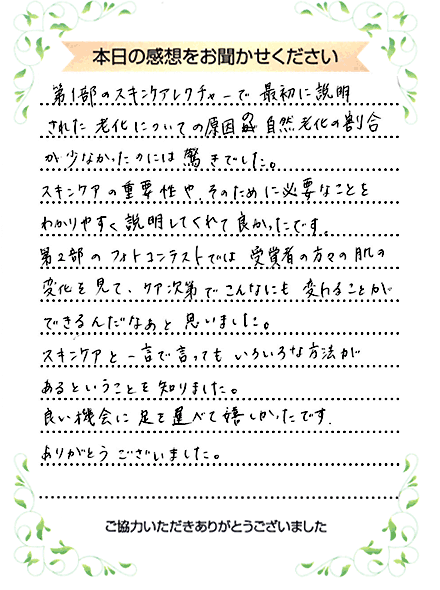 本日の感想をお聞かせください
第1部のスキンケアレクチャーで最初に説明
された老化についての原因 自然老化の割合
が少なかったのには驚きでした。
スキンケアの重要性や、そのために必要なことを
わかりやすく説明してくれて良かったです。
第2部のフォトコンテストでは受賞者の方々の肌の
変化を見て、ケア次第でこんなにも変れることが
できるんだなぁと思いました。
スキンケアと一言で言ってもいろいろな方法が
あるということを知りました。
良い機会に足を運べて嬉しかったです.
ありがとうございました。
ご協力いただきありがとうございました